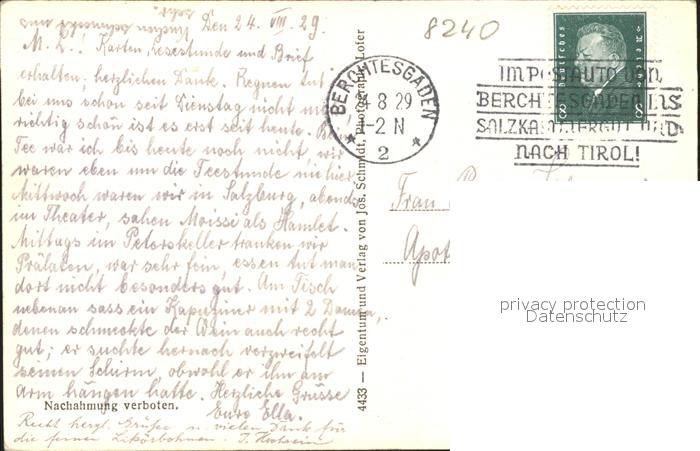 Den 24. VIII. 29.
M. L.: Karten, Lesestunde und Brief
erhalten, herzlichen Dank. Regnen tut
bei uns schon seit Dienstag nicht mehr
richtig schön ist es erst seit heute. Beim
Tee war ich bis heute noch nicht, wir
waren eben um die Teestunde nie hier.
Mittwoch waren wir in Salzburg, abends
im Theater, sahen Moissi als Hamlet.
Mittags im Peterskeller tranken wir
Prälaten, war sehr fein, essen tut man
dort nicht besonders gut. Am Tisch
nebenan sass ein Kapuziner mit 2 Damen,
denen schmeckte der Wein auch recht
gut; er suchte hernach verzweifelt
seinen Schirm, obwohl er ihn am
Arm hängen hatte. Herzliche Grüsse
Eure Ella.
Nachahmung verboten.
Recht herzl. Grüße u. vielen Dank für
die feinen Likörbohnen.
4433 — Eigentum und Verlag von Jos. Schmidt, Photograph, Lofer
8240
BERCHTESGADEN
24 8 29
1-2 N
2
Deutsches Reich
8 8
IM POSTAUTO VON
BERCHTESGADEN INS
SALZKAMMERGUT UND
NACH TIROL!
Frau
Apot
privacy protection
Datenschutz